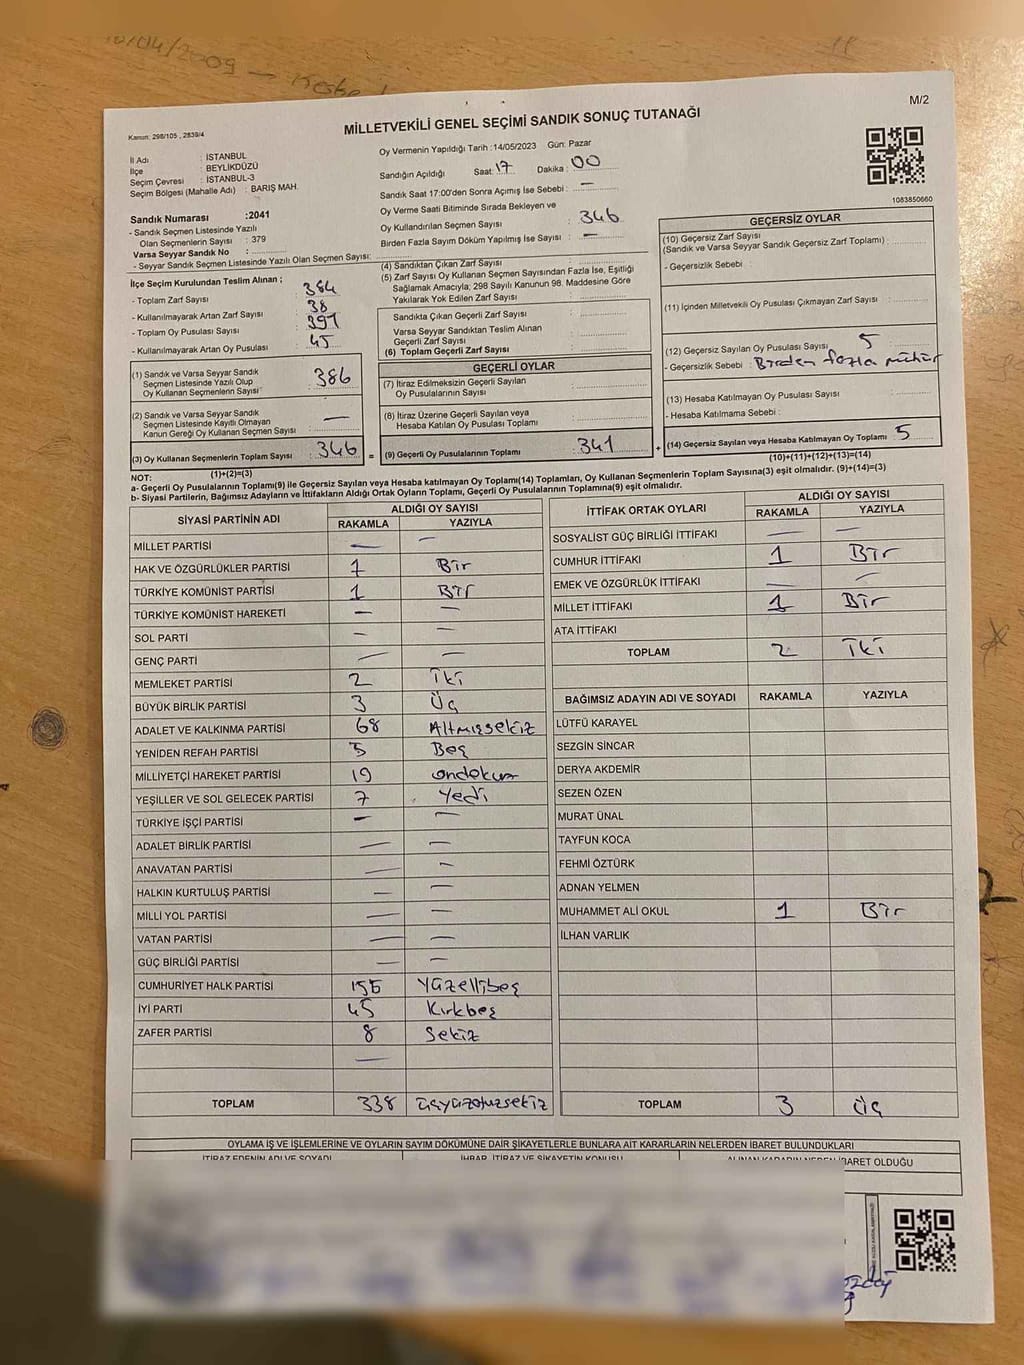 M/2
MİLLETVEKİLİ GENEL SEÇİMİ SANDIK SONUÇ TUTANAĞI
Kanun: 298/105 , 2839/4
İl Adı : İSTANBUL
İlçe : BEYLİKDÜZÜ
Seçim Çevresi : İSTANBUL-3
Seçim Bölgesi (Mahalle Adı) : BARIŞ MAH.
Oy Vermenin Yapıldığı Tarih :14/05/2023 Gün: Pazar
Sandığın Açıldığı Saat: 17 Dakika : 00
Sandık Saat 17:00'den Sonra Açımış İse Sebebi : —
Oy Verme Saati Bitiminde Sırada Bekleyen ve
Oy Kullandırılan Seçmen Sayısı : 346
Birden Fazla Sayım Döküm Yapılmış İse Sayısı : —
1083850660
Sandık Numarası :2041
- Sandık Seçmen Listesinde Yazılı
Olan Seçmenlerin Sayısı : 379
Varsa Seyyar Sandık No :
- Seyyar Sandık Seçmen Listesinde Yazılı Olan Seçmen Sayısı:
İlçe Seçim Kurulundan Teslim Alınan ;
- Toplam Zarf Sayısı : 384
- Kullanılmayarak Artan Zarf Sayısı : 38
- Toplam Oy Pusulası Sayısı : 391
- Kullanılmayarak Artan Oy Pusulası : 45
(1) Sandık ve Varsa Seyyar Sandık
Seçmen Listesinde Yazılı Olup
Oy Kullanan Seçmenlerin Sayısı : 386
(2) Sandık ve Varsa Seyyar Sandık
Seçmen Listesinde Kayıtlı Olmayan
Kanun Gereği Oy Kullanan Seçmen Sayısı : —
(3) Oy Kullanan Seçmenlerin Toplam Sayısı : 346
(1)+(2)=(3)
(4) Sandıktan Çıkan Zarf Sayısı :
(5) Zarf Sayısı Oy Kullanan Seçmen Sayısından Fazla İse, Eşitliği
Sağlamak Amacıyla; 298 Sayılı Kanunun 98. Maddesine Göre
Yakılarak Yok Edilen Zarf Sayısı :
Sandıkta Çıkan Geçerli Zarf Sayısı :
Varsa Seyyar Sandıktan Teslim Alınan
Geçerli Zarf Sayısı :
(6) Toplam Geçerli Zarf Sayısı :
GEÇERLİ OYLAR
(7) İtiraz Edilmeksizin Geçerli Sayılan
Oy Pusulalarının Sayısı :
(8) İtiraz Üzerine Geçerli Sayılan veya
Hesaba Katılan Oy Pusulası Toplamı :
= (9) Geçerli Oy Pusulalarının Toplamı : 341 +
GEÇERSİZ OYLAR
(10) Geçersiz Zarf Sayısı
(Sandık ve Varsa Seyyar Sandık Geçersiz Zarf Toplamı) :
- Geçersizlik Sebebi :
(11) İçinden Milletvekili Oy Pusulası Çıkmayan Zarf Sayısı :
(12) Geçersiz Sayılan Oy Pusulası Sayısı : 5
- Geçersizlik Sebebi : Birden fazla mühür
(13) Hesaba Katılmayan Oy Pusulası Sayısı :
- Hesaba Katılmama Sebebi :
(14) Geçersiz Sayılan veya Hesaba Katılmayan Oy Toplamı : 5
(10)+(11)+(12)+(13)=(14)
NOT:
a- Geçerli Oy Pusulalarının Toplamı(9) ile Geçersiz Sayılan veya Hesaba katılmayan Oy Toplamı(14) Toplamları, Oy Kullanan Seçmenlerin Toplam Sayısına(3) eşit olmalıdır. (9)+(14)=(3)
b- Siyasi Partilerin, Bağımsız Adayların ve İttifakların Aldığı Ortak Oyların Toplamı, Geçerli Oy Pusulalarının Toplamına(9) eşit olmalıdır.
SİYASİ PARTİNİN ADI ALDIĞI OY SAYISI
RAKAMLA YAZIYLA
MİLLET PARTİSİ — —
HAK VE ÖZGÜRLÜKLER PARTİSİ 1 Bir
TÜRKİYE KOMÜNİST PARTİSİ 1 Bir
TÜRKİYE KOMÜNİST HAREKETİ — —
SOL PARTİ — —
GENÇ PARTİ — —
MEMLEKET PARTİSİ 2 İki
BÜYÜK BİRLİK PARTİSİ 3 Üç
ADALET VE KALKINMA PARTİSİ 68 Altmışsekiz
YENİDEN REFAH PARTİSİ 5 Beş
MİLLİYETÇİ HAREKET PARTİSİ 19 ondokuz
YEŞİLLER VE SOL GELECEK PARTİSİ 7 Yedi
TÜRKİYE İŞÇİ PARTİSİ — —
ADALET BİRLİK PARTİSİ — —
ANAVATAN PARTİSİ — —
HALKIN KURTULUŞ PARTİSİ — —
MİLLİ YOL PARTİSİ — —
VATAN PARTİSİ — —
GÜÇ BİRLİĞİ PARTİSİ — —
CUMHURİYET HALK PARTİSİ 155 Yüzellibeş
İYİ PARTİ 45 Kırkbeş
ZAFER PARTİSİ 8 Sekiz
—
TOPLAM 338 üçyüzotuzsekiz
İTTİFAK ORTAK OYLARI ALDIĞI OY SAYISI
RAKAMLA YAZIYLA
SOSYALİST GÜÇ BİRLİĞİ İTTİFAKI — —
CUMHUR İTTİFAKI 1 Bir
EMEK VE ÖZGÜRLÜK İTTİFAKI — —
MİLLET İTTİFAKI 1 Bir
ATA İTTİFAKI
TOPLAM 2 İki
BAĞIMSIZ ADAYIN ADI VE SOYADI RAKAMLA YAZIYLA
LÜTFÜ KARAYEL
SEZGİN SİNCAR
DERYA AKDEMİR
SEZEN ÖZEN
MURAT ÜNAL
TAYFUN KOCA
FEHMİ ÖZTÜRK
ADNAN YELMEN
MUHAMMET ALİ OKUL 1 Bir
İLHAN VARLIK
TOPLAM 3 üç
OYLAMA İŞ VE İŞLEMLERİNE VE OYLARIN SAYIM DÖKÜMÜNE DAİR ŞİKAYETLERLE BUNLARA AİT KARARLARIN NELERDEN İBARET BULUNDUKLARI
İTİRAZ EDENİN ADI VE SOYADI İHBAR, İTİRAZ VE ŞİKAYETİN KONUSU ALINAN KARARIN NEDEN İBARET OLDUĞU